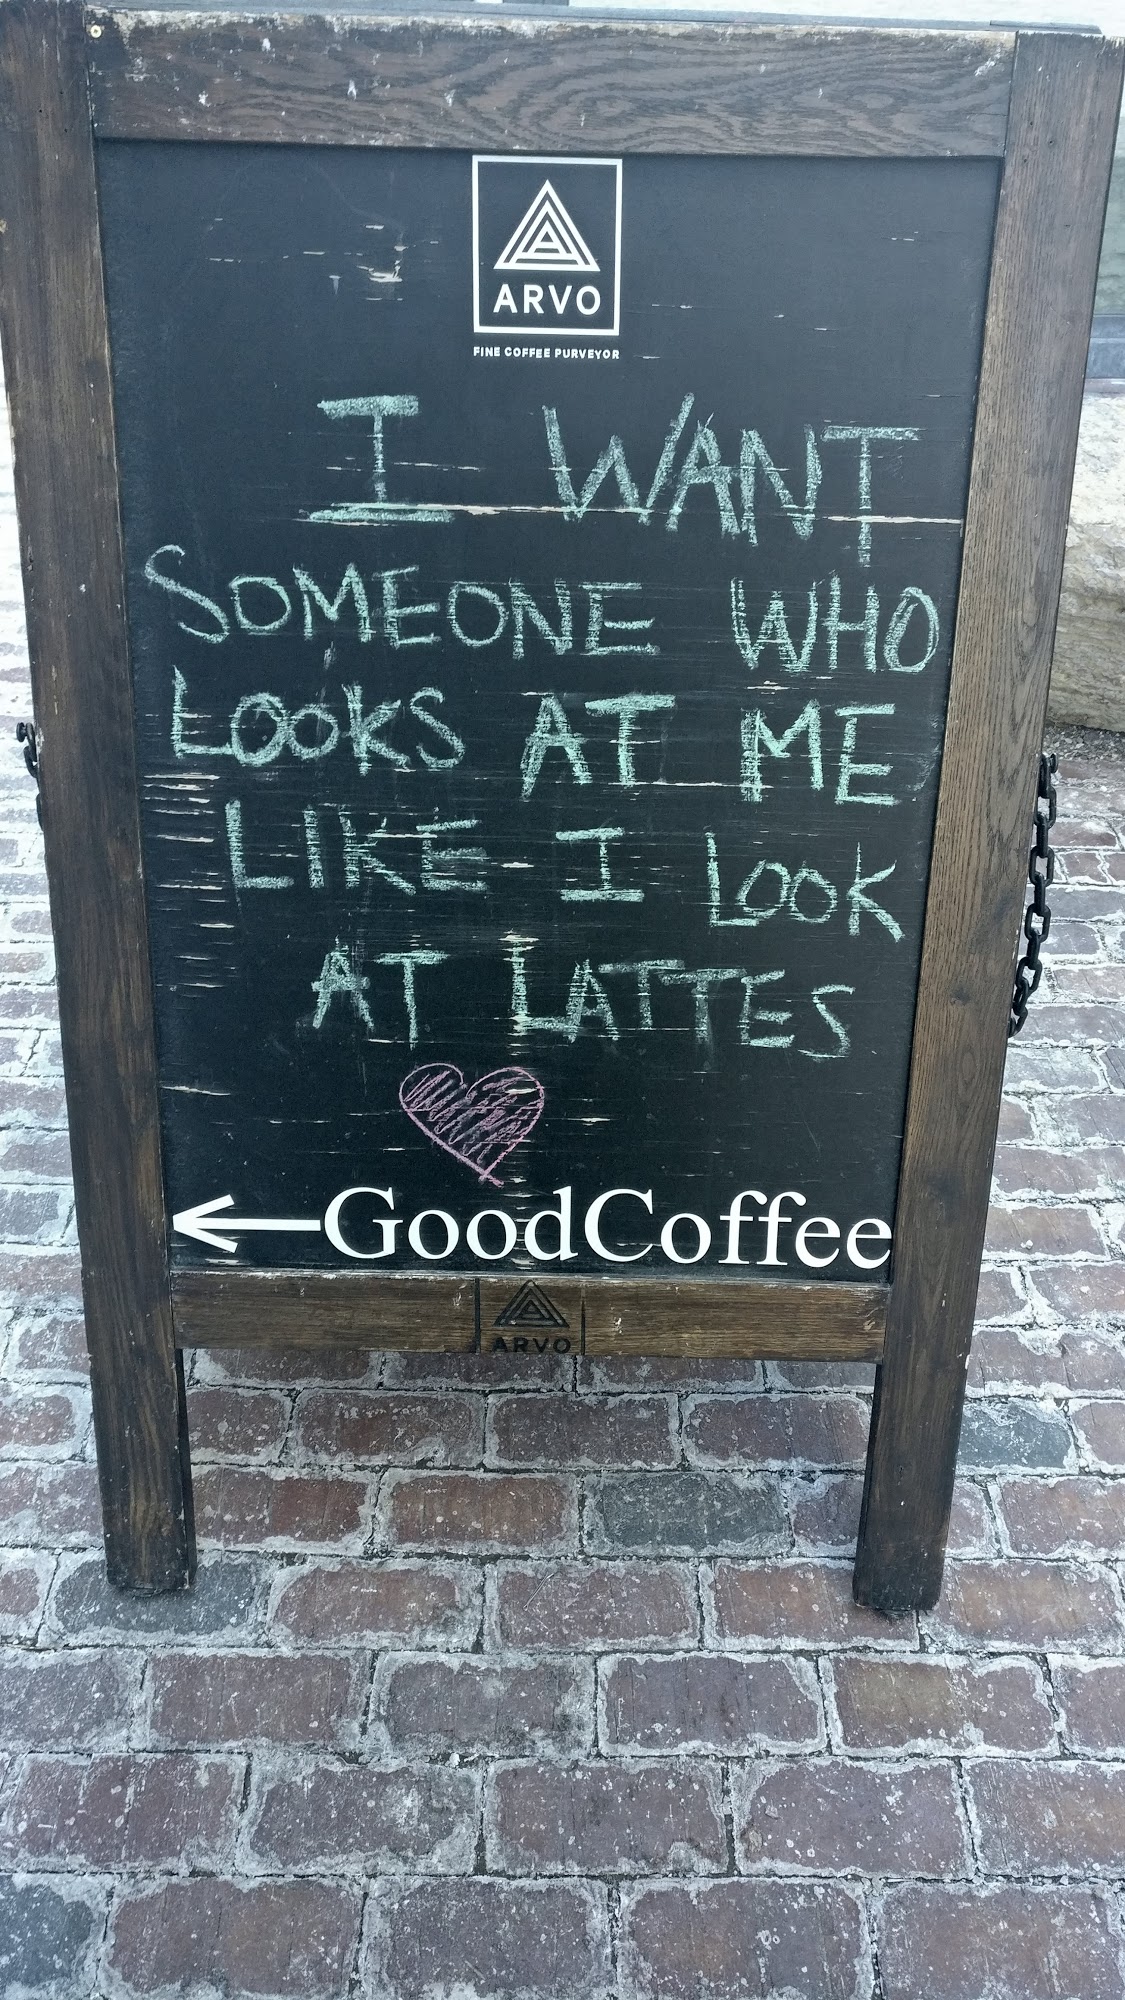 ARVO
FINE COFFEE PURVEYOR
I WANT
SOMEONE WHO
LOOKS AT ME
LIKE I LOOK
AT LATTES
←GoodCoffee
ARVO